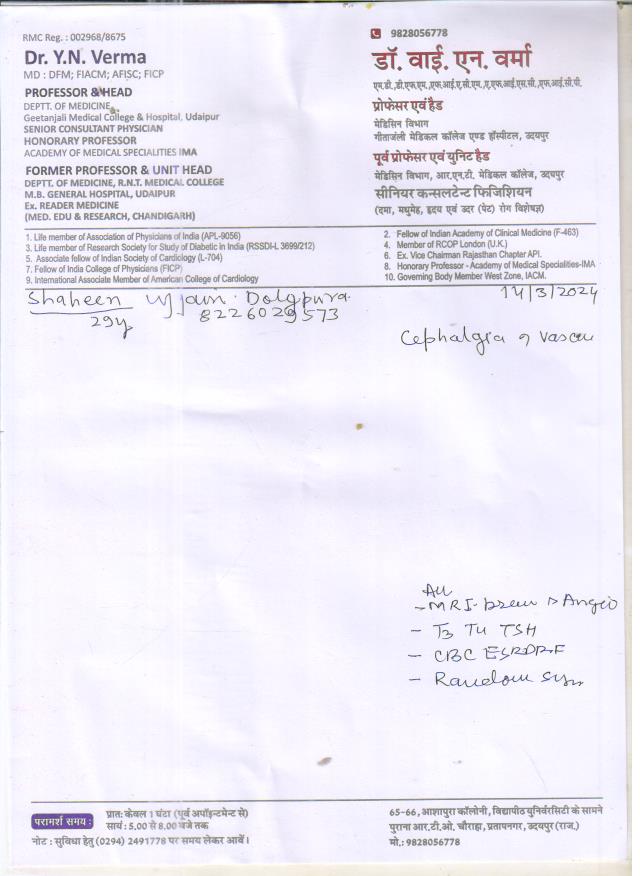 RMC Reg. : 002968/8675
Dr. Y.N. Verma
MD : DFM; FIACM; AFISC; FICP
PROFESSOR & HEAD
DEPTT. OF MEDICINE
Geetanjali Medical College & Hospital, Udaipur
SENIOR CONSULTANT PHYSICIAN
HONORARY PROFESSOR
ACADEMY OF MEDICAL SPECIALITIES IMA
FORMER PROFESSOR & UNIT HEAD
DEPTT. OF MEDICINE, R.N.T. MEDICAL COLLEGE
M.B. GENERAL HOSPITAL, UDAIPUR
Ex. READER MEDICINE
(MED. EDU & RESEARCH, CHANDIGARH)
9828056778
डॉ. वाई. एन. वर्मा
एम.डी.,डी.एफ.एम.,एफ.आई.ए.सी.एम.,ए.एफ.आई.एस.सी.,एफ.आई.सी.पी.
प्रोफेसर एवं हैड
मेडिसिन विभाग
गीतांजली मेडिकल कॉलेज एण्ड हॉस्पीटल, उदयपुर
पूर्व प्रोफेसर एवं युनिट हैड
मेडिसिन विभाग, आर.एन.टी. मेडिकल कॉलेज, उदयपुर
सीनियर कन्सलटेन्ट फिजिशियन
(दमा, मधुमेह, हृदय एवं उदर (पेट) रोग विशेषज्ञ)
1. Life member of Association of Physicians of India (APL-9056)
3. Life member of Research Society for Study of Diabetic in India (RSSDI-L 3699/212)
5. Associate fellow of Indian Society of Cardiology (L-704)
7. Fellow of India College of Physicians (FICP)
9. International Associate Member of American College of Cardiology
2. Fellow of Indian Academy of Clinical Medicine (F-463)
4. Member of RCOP London (U.K.)
6. Ex. Vice Chairman Rajasthan Chapter API.
8. Honorary Professor - Academy of Medical Specialities-IMA
10. Governing Body Member West Zone, IACM.
Shaheen Ujjain Dolgpura 14/3/2024
29y 8226029573
Cephalgia
- MRI- Angio
- T3 T4 TSH
- CBC ESR
- Random
परामर्श समय :
प्रातः केवल 1 घंटा (पूर्व अपॉइन्टमेन्ट से)
सायं : 5.00 से 8.00 बजे तक
नोट : सुविधा हेतु (0294) 2491778 पर समय लेकर आवें।
65-66, आशापुरा कॉलोनी, विद्यापीठ युनिर्वरसिटी के सामने
पुराना आर.टी.ओ. चौराहा, प्रतापनगर, उदयपुर (राज.)
मो.: 9828056778